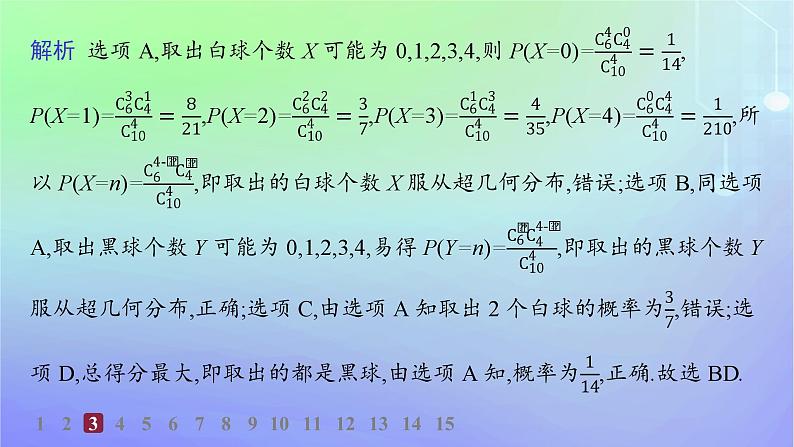 解析 选项 A,取出白球个数 X 可能为 0,1,2,3,4,则 P(X=0)=\frac{C_6^4C_4^0}{C_{10}^4}=\frac{1}{14},
P(X=1)=\frac{C_6^3C_4^1}{C_{10}^4}=\frac{8}{21},P(X=2)=\frac{C_6^2C_4^2}{C_{10}^4}=\frac{3}{7},P(X=3)=\frac{C_6^1C_4^3}{C_{10}^4}=\frac{4}{35},P(X=4)=\frac{C_6^0C_4^4}{C_{10}^4}=\frac{1}{210},所
以 P(X=n)=\frac{C_6^{4-}C_4}{C_{10}^4},即取出的白球个数 X 服从超几何分布,错误;选项 B,同选项
A,取出黑球个数 Y 可能为 0,1,2,3,4,易得 P(Y=n)=\frac{C_6C_4^{4-}}{C_{10}^4},即取出的黑球个数 Y
服从超几何分布,正确;选项 C,由选项 A 知取出 2 个白球的概率为\frac{3}{7},错误;选
项 D,总得分最大,即取出的都是黑球,由选项 A 知,概率为\frac{1}{14},正确.故选 BD.
1 2 3 4 5 6 7 8 9 10 11 12 13 14 15